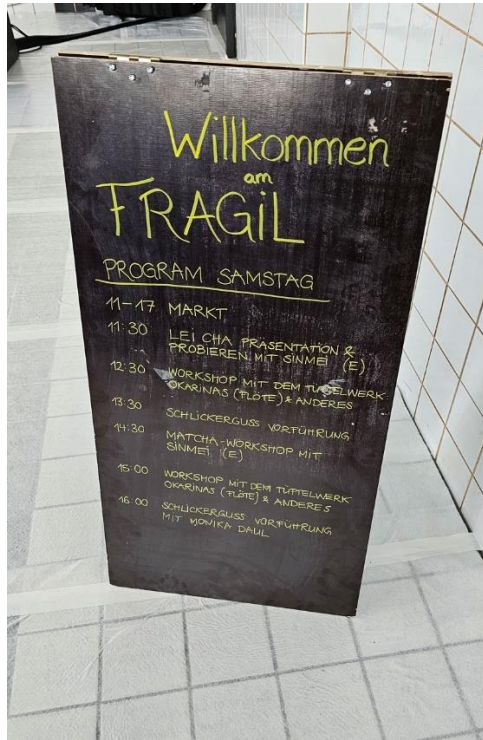 Willkommen
am
FRAGiL
PROGRAM SAMSTAG
11-17 MARKT
11:30 LEI CHA PRÄSENTATION &
PROBIEREN MIT SINMEI (E)
12:30 WORKSHOP MIT DEM
OKARINAS (FLÖTE) & ANDERES
13:30 SCHLICKERGUSS VORFÜHRUNG
14:30 MATCHA-WORKSHOP MIT
SINMEI (E)
15:00 WORKSHOP MIT DEM TÜPTELWERK
OKARINAS (FLÖTE) & ANDERES
16:00 SCHLICKERGUSS VORFÜHRUNG
MIT MONIKA DAUL